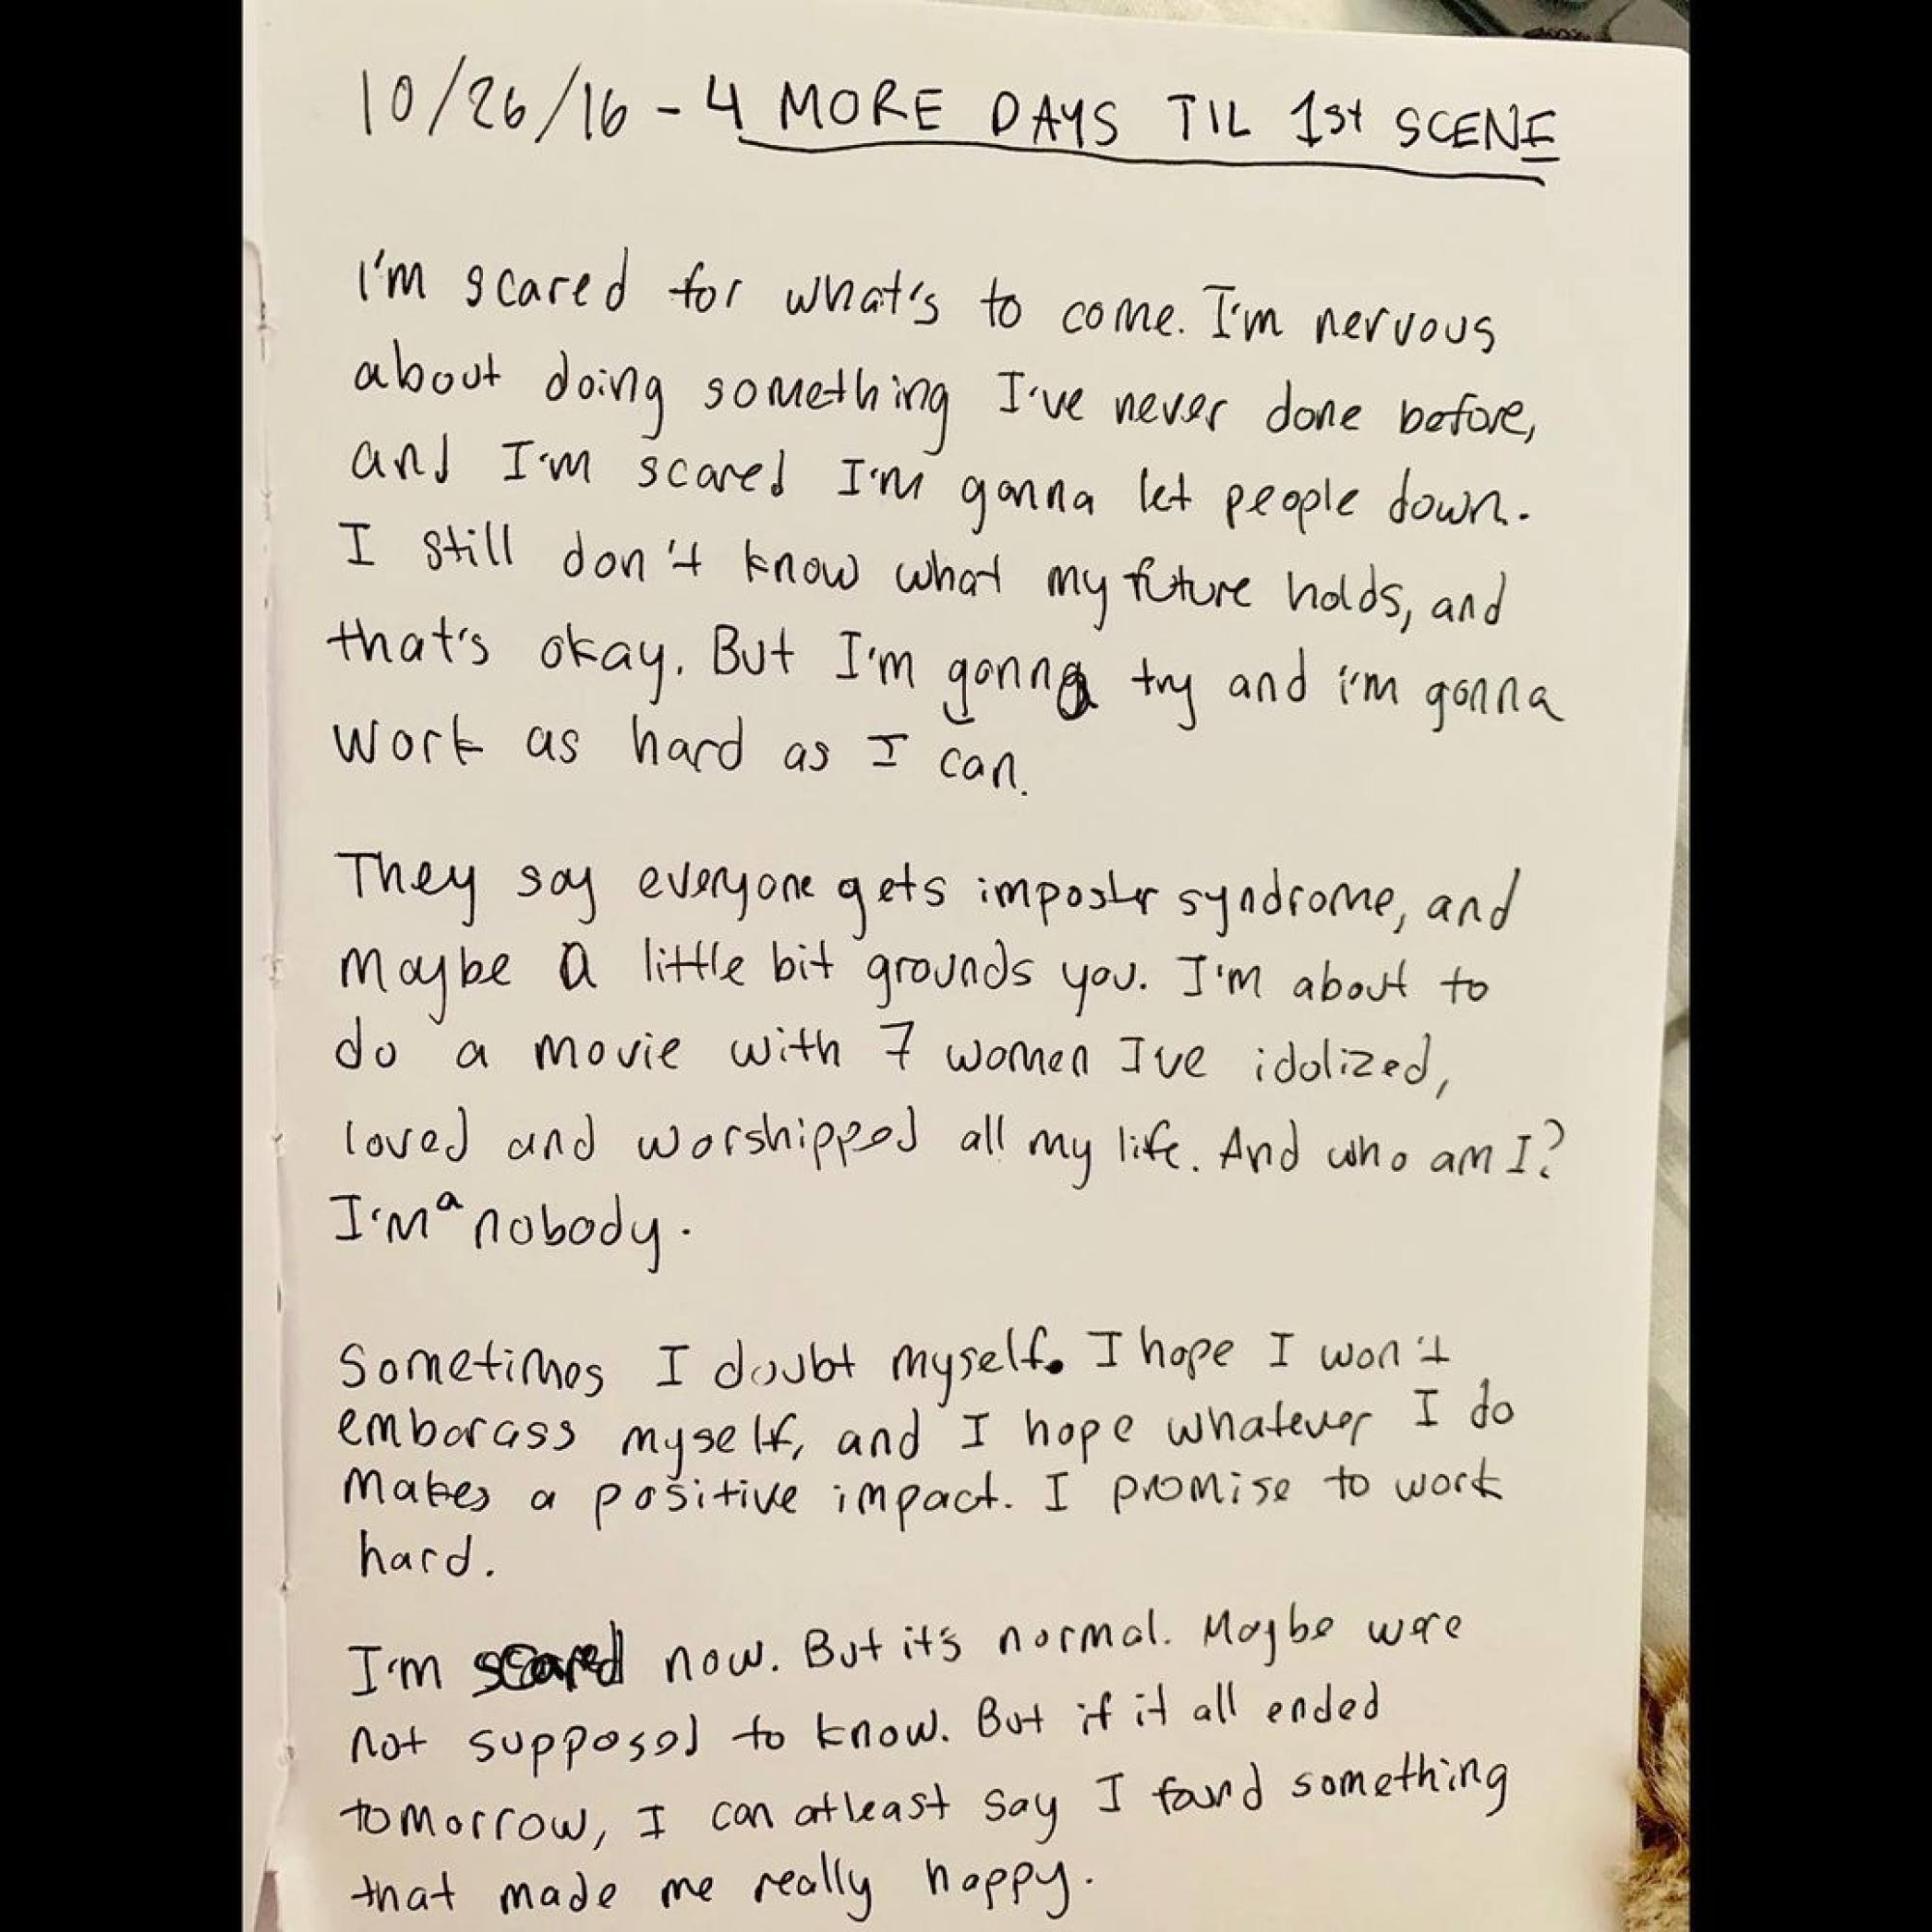 10/26/16 - 4 MORE DAYS TIL 1st SCENE
I'm scared for what's to come. I'm nervous
about doing something I've never done before,
and I'm scared I'm gonna let people down.
I still don't know what my future holds, and
that's okay. But I'm gonna try and i'm gonna
work as hard as I can.
They say everyone gets imposter syndrome, and
maybe a little bit grounds you. I'm about to
do a movie with 7 women Ive idolized,
loved and worshipped all my life. And who am I?
I'm a nobody.
Sometimes I doubt myself. I hope I won't
embarass myself, and I hope whatever I do
makes a positive impact. I promise to work
hard.
I'm scared now. But it's normal. Maybe were
not supposed to know. But if it all ended
tomorrow, I can atleast say I found something
that made me really happy.